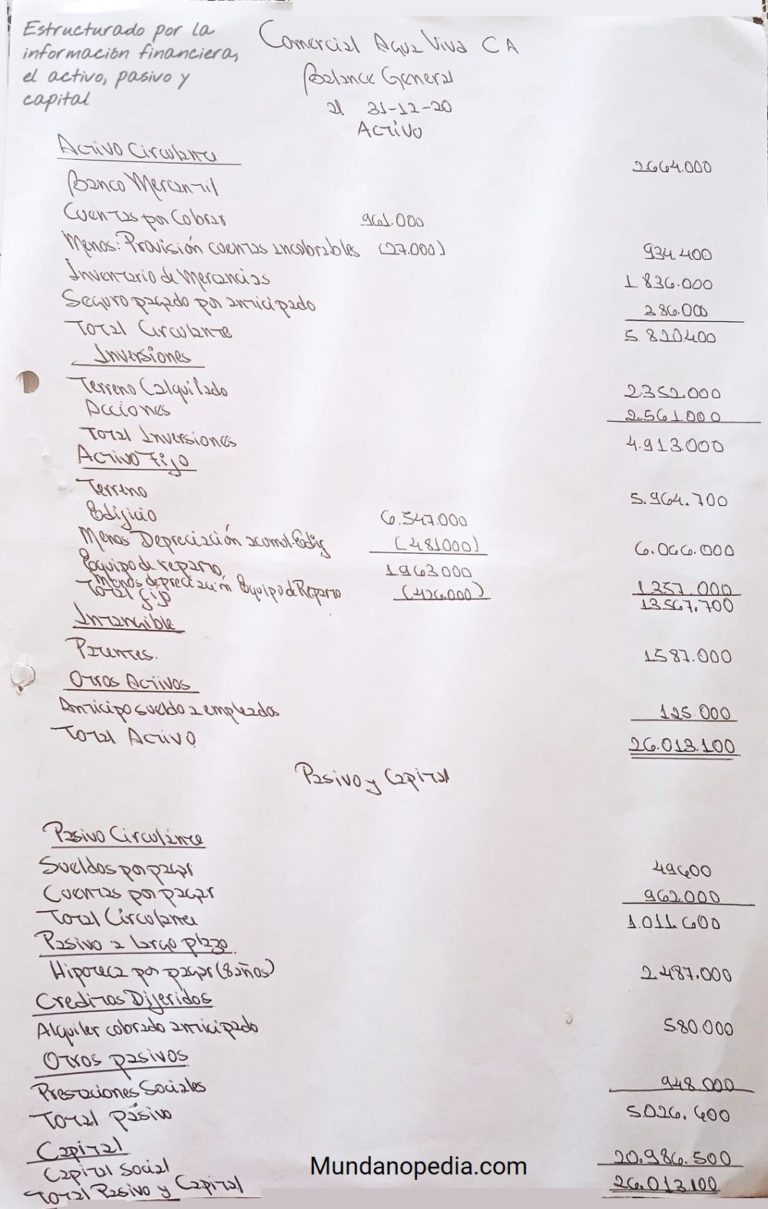 Estructurado por la
información financiera,
el activo, pasivo y
capital
Comercial Agua Viva CA
Balance General
al 31-12-20
Activo
Activo Circulante
Banco Mercantil 2664.000
Cuentas por Cobrar 961.000
Menos: Provisión cuentas incobrables (27.000) 934.400
Inventario de Mercancías 1.836.000
Seguro pagado por anticipado 386.000
Total Circulante 5 820400
Inversiones
Terreno (alquilado 2352.000
Acciones 2.561.000
Total Inversiones 4.913.000
Activo Fijo
Terreno 5.964.700
Edificio 6.547.000
Menos Depreciación acumul. Edig (481000) 6.066.000
Equipo de reparto 1963000
Menos depreciación Equipo de Reparto (426.000) 1357.000
Total fijo 13567.700
Intangible
Patentes. 1587.000
Otros Activos
Anticipo sueldo a empleados 125.000
Total Activo 26.013.100
Pasivo y Capital
Pasivo Circulante
Sueldos por pagar 49600
Cuentas por pagar 962000
Total Circulante 1.011.600
Pasivo a largo plazo
Hipoteca por pagar (8 años) 2.487.000
Creditos Diferidos
Alquiler cobrado anticipado 580.000
Otros pasivos
Prestaciones Sociales 948.000
Total pasivo 5026.600
Capital
Capital social 20.986.500
Total Pasivo y Capital 26.013.100
Mundanopedia.com